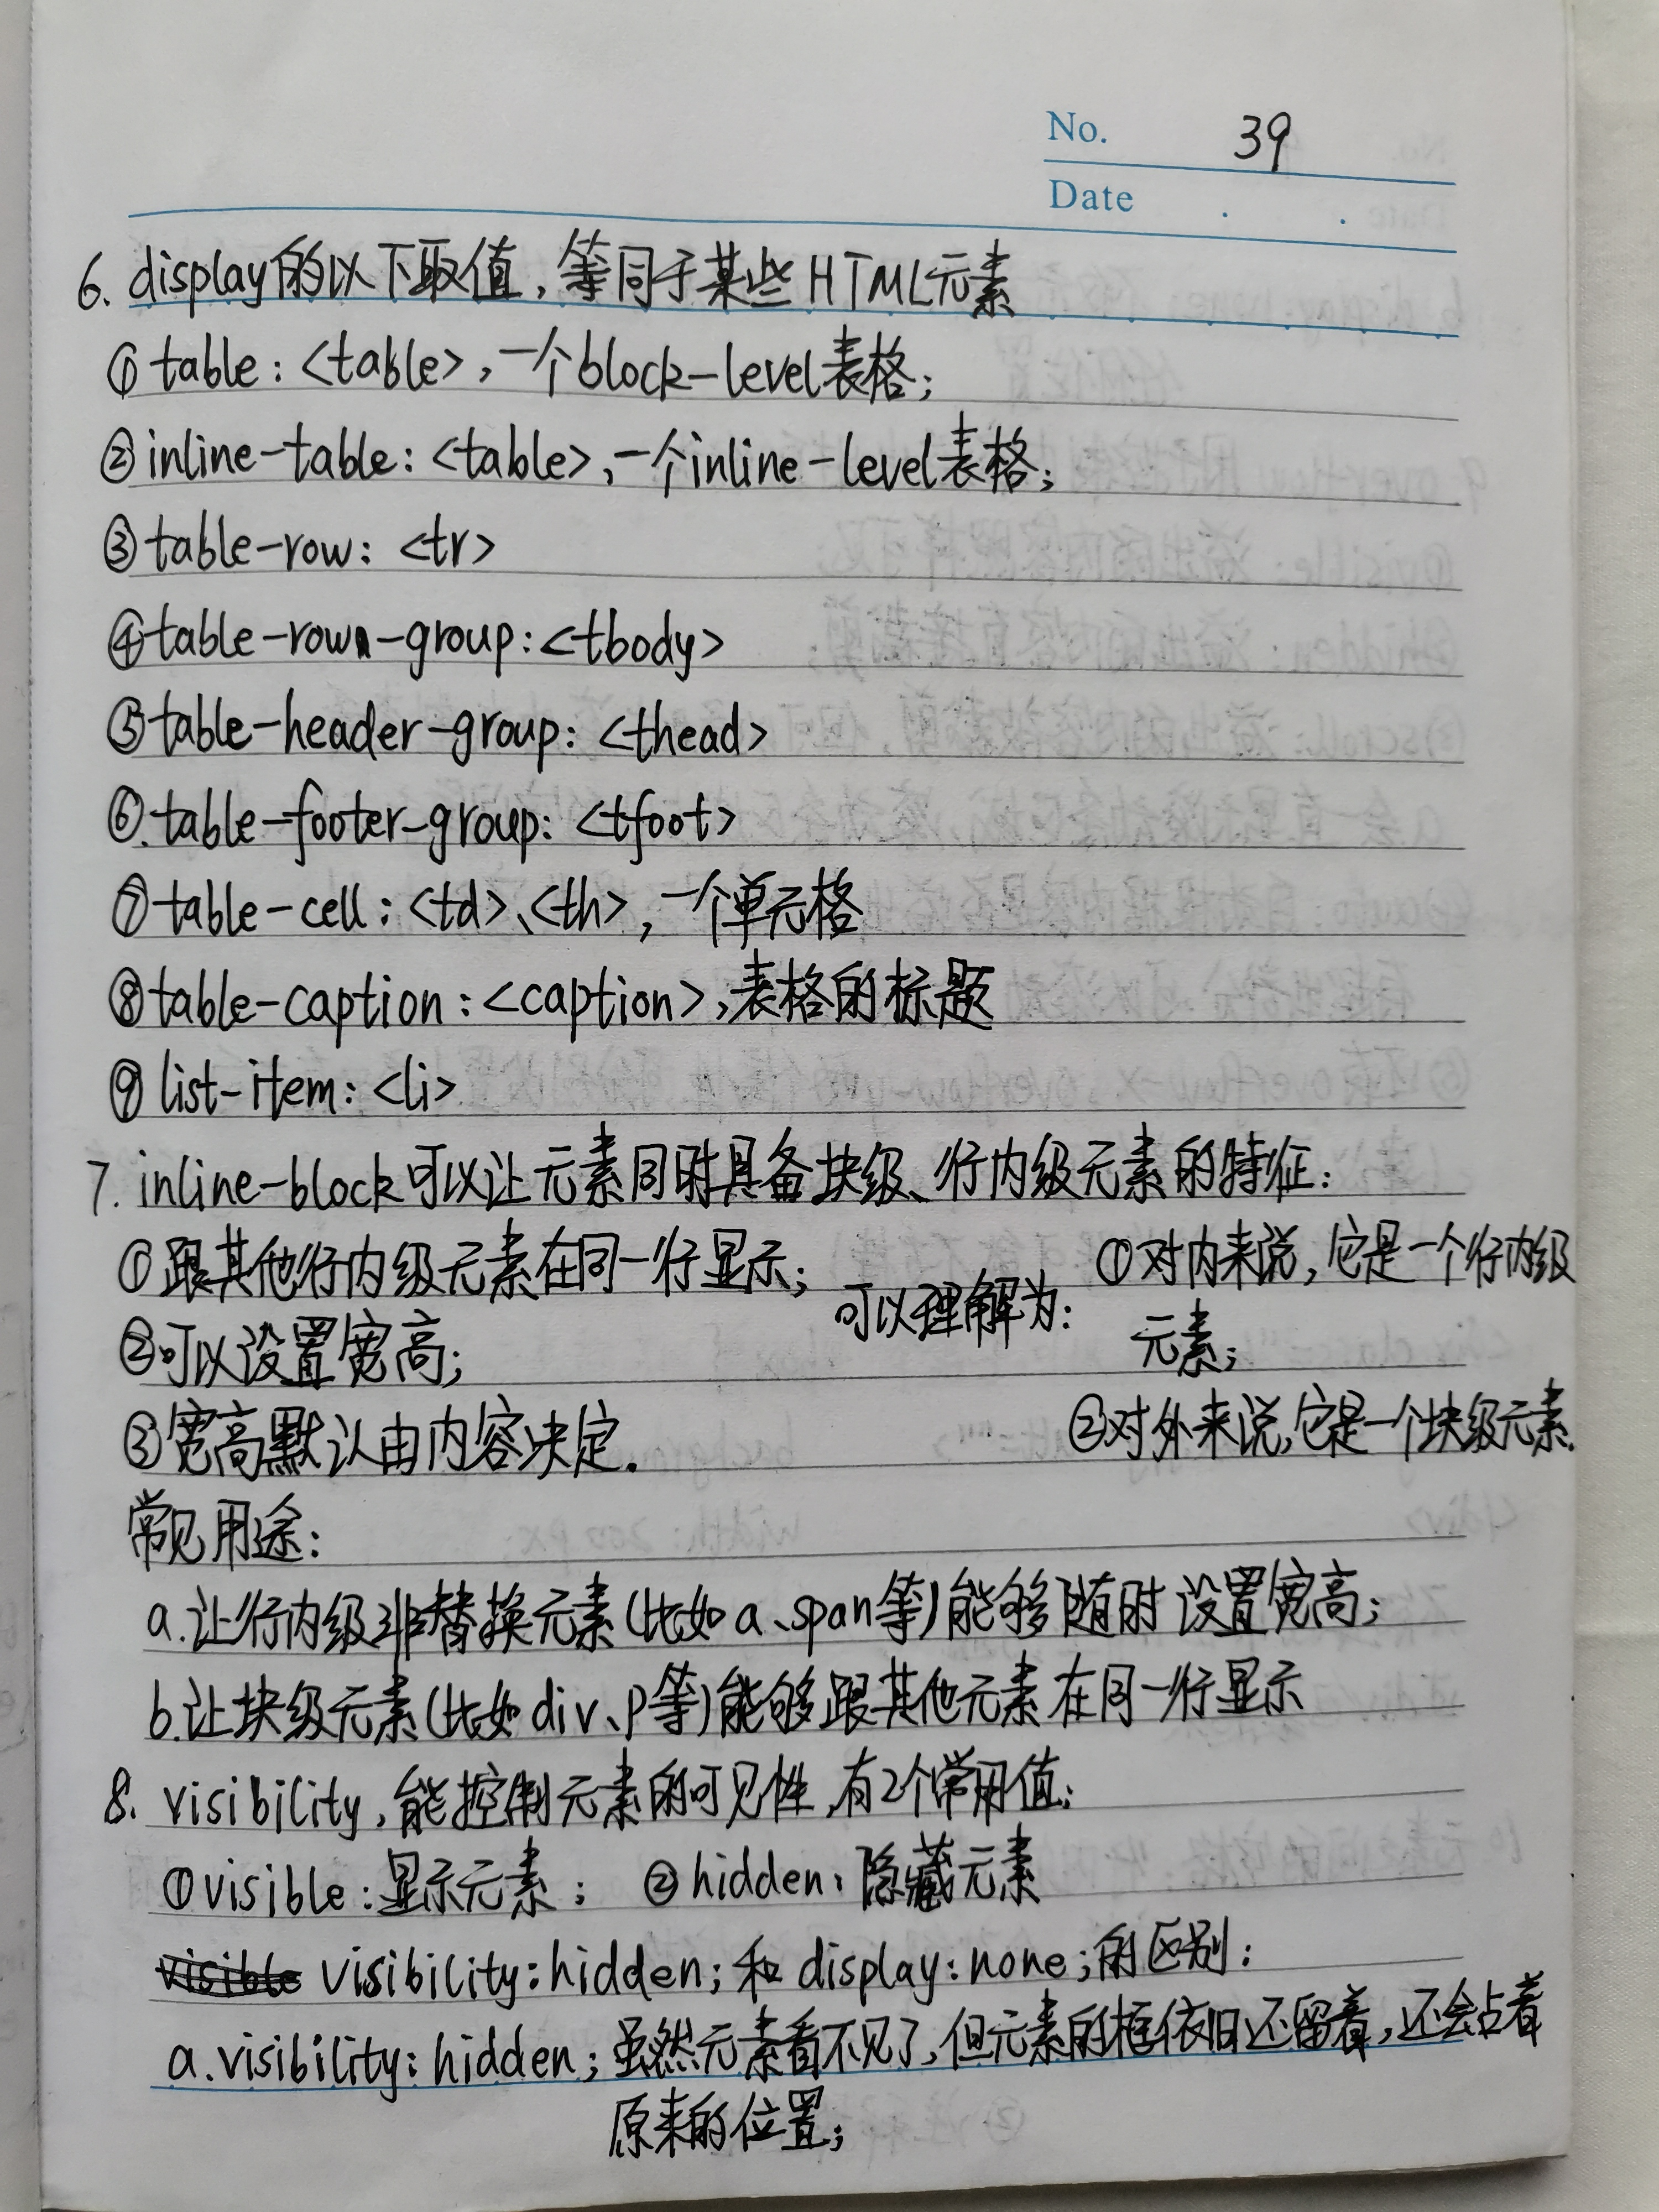 No. 39
Date . .
6. display的以下取值,等同于某些HTML元素
①table:<table>,一个block-level表格;
②inline-table:<table>,一个inline-level表格;
③table-row:<tr>
④table-row-group:<tbody>
⑤table-header-group:<thead>
⑥.table-footer-group:<tfoot>
⑦table-cell:<td>、<th>,一个单元格
⑧table-caption:<caption>,表格的标题
⑨list-item:<li>
7. inline-block可以让元素同时具备块级、行内级元素的特征:
①跟其他行内级元素在同一行显示;
②可以设置宽高;
③宽高默认由内容决定.
可以理解为:
①对内来说,它是一个行内级
元素;
②对外来说,它是一个块级元素.
常见用途:
a.让行内级非替换元素(比如a、span等)能够随时设置宽高;
b.让块级元素(比如div、p等)能够跟其他元素在同一行显示
8. visibility,能控制元素的可见性,有2个常用值:
①visible:显示元素; ②hidden:隐藏元素
visible visibility:hidden;和display:none;的区别:
a.visibility:hidden;虽然元素看不见了,但元素的框依旧还留着,还会占着
原来的位置;